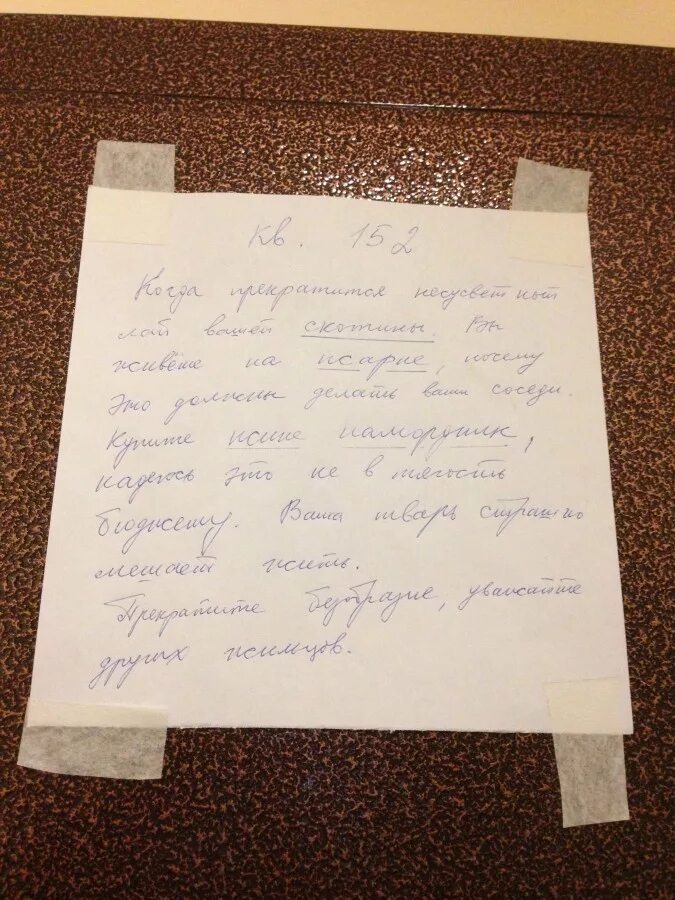 кв. 152
Когда прекратится несусветный
лай вашей скотины. Вы
живёте на псарне, почему
это должны делать ваши соседи.
Купите псине намордник,
надеюсь это не в тягость
бюджету. Ваша тварь страшно
мешает жить.
Прекратите безобразие, уважайте
других жильцов.